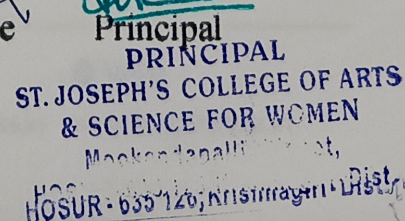 e Principal
PRINCIPAL
ST. JOSEPH'S COLLEGE OF ARTS
& SCIENCE FOR WOMEN
Mookandapalli
HOSUR - 635 126, Krishnagiri Dist.